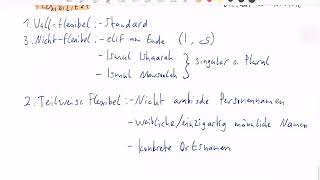 1. Voll-flexibel:- Standard
3. Nicht-flexibel:- elif am Ende (ا, ى)
- Ismul Ishaarah
- Ismul Mausoolah } singular o. Plural
2. Teilweise Flexibel:- Nicht arabische Personennamen
- weibliche/einzigartig männliche Namen
- konkrete Ortsnamen